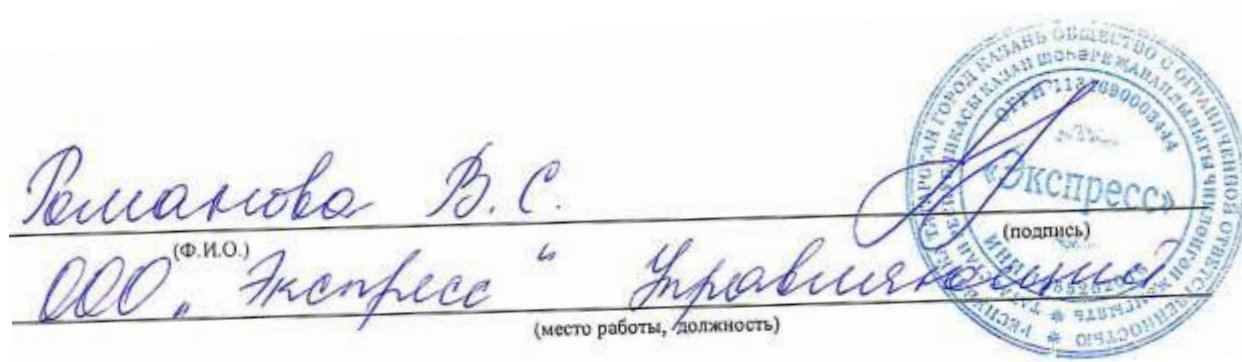 Романова В. С.
(Ф.И.О.)
(подпись)
ООО „Экспресс“ Управляющий
(место работы, должность)
РЕСПУБЛИКА ТАТАРСТАН ГОРОД КАЗАНЬ ОБЩЕСТВО С ОГРАНИЧЕННОЙ ОТВЕТСТВЕННОСТЬЮ
ОГРН
«Экспресс»
ИНН